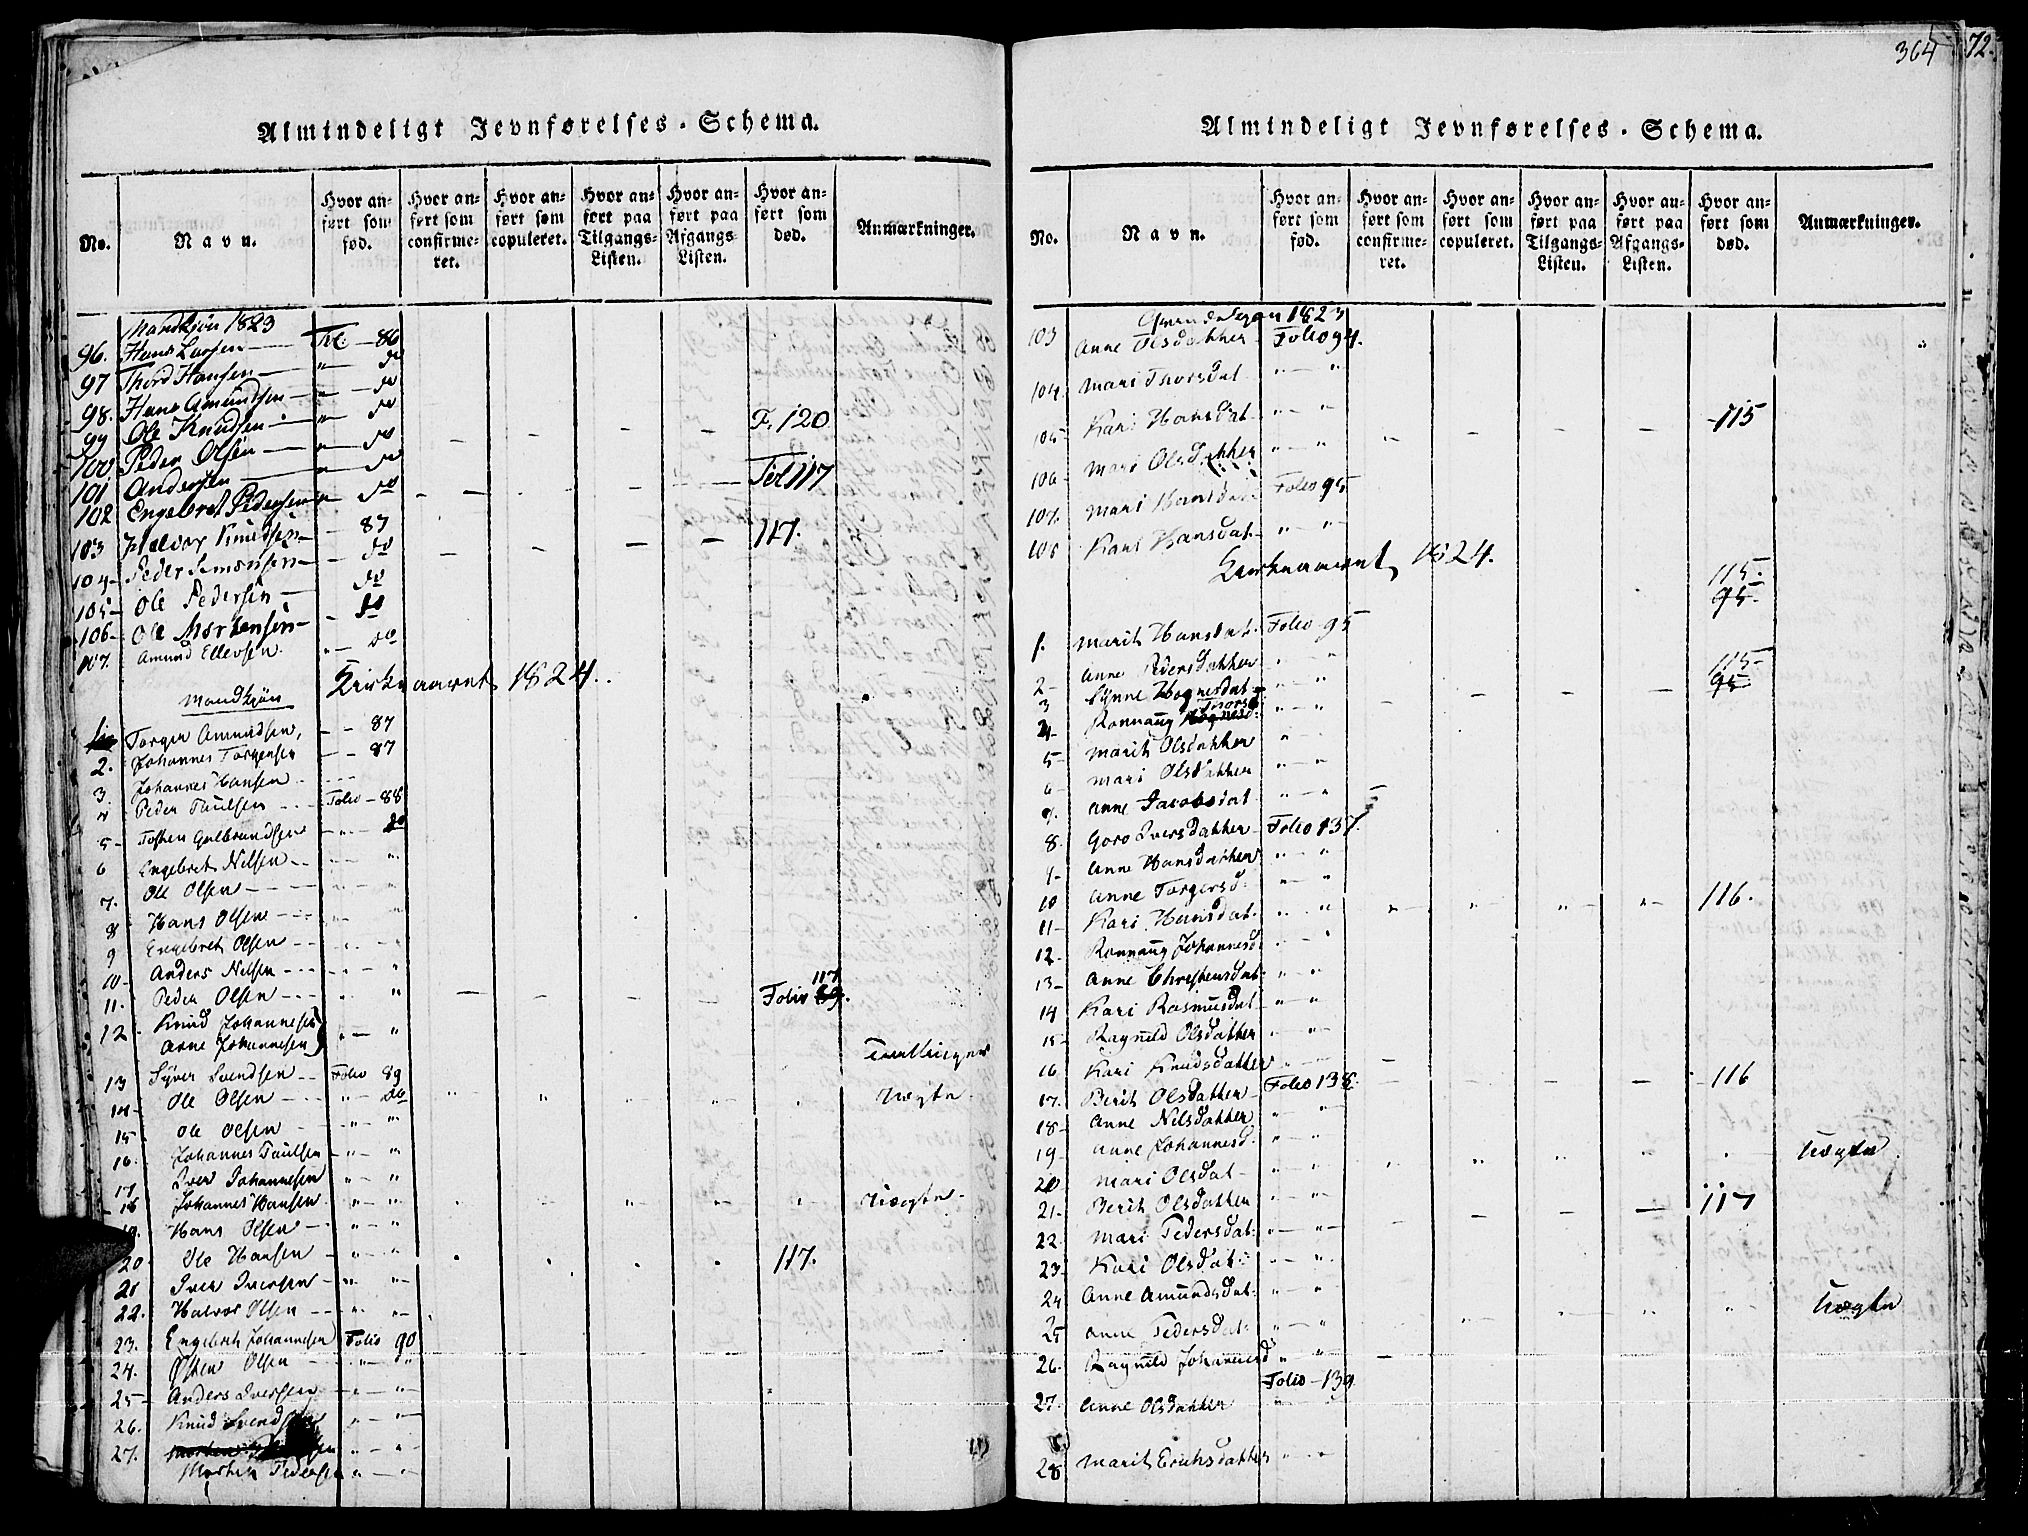 364
72.
Almindeligt Jevnførelses-Schema.
No.
Navn.
Hvor anført som fød.
Hvor anført som confirmeret.
Hvor anført som copuleret.
Hvor anført paa Tilgangs-Listen.
Hvor anført paa Afgangs-Listen.
Hvor anført som død.
Anmærkninger.
Mandkjøn 1823
96. Hans Larsen — Fol. — 86
97 Thord Hansen — " do
98. Hans Amundsen — " do
99 Ole Knudsen — " do F. 120
100 Peder Olsen — " do
101 Andersen — " do Fol 117
102 Engebret Pedersen " do
103 Halvor Knudsen — 87 117.
104 Peder Simensen — do
105 Ole Pedersen — do
106 Ole Mortensen — do
107. Amund Ellevsen. " — do
Kirkeaaret 1824.
Mandkjøn
Torger Amundsen, — — 87
2. Johannes Torgersen — — 87
3. Johannes Hansen
4 Peder Paulsen Folio — 88
5 Tosten Gulbrandsen — " — do
6 Engebret Nilsen — "
7. Ole Olsen — "
8 Hans Olsen — "
9 Engebret Olsen — "
10 Anders Nilsen " — "
11. Peder Olsen " — " Folio 117
12 Knud Johannesen
Arne Johannesen " — " Tvillinger
13 Syver Svendsen Folio 89
14 Ole Olsen " — do Uægte.
15. Ole Olsen " — "
16. Johannes Paulsen " — "
17 Iver Johannesen " — "
18 Johannes Hansen " — " Uægte.
19. Hans Olsen " — "
20 Ole Hansen " — " 117.
21 Iver Iversen " — "
22. Halvor Olsen " — "
23. Engebret Johannesen Folio 90
24. Østen Olsen " — "
25 Anders Iversen " — "
26. Knud Svendsen " — "
27. Morten Pedersen " — "
Almindeligt Jevnførelses-Schema.
No.
Navn.
Hvor anført som fød.
Hvor anført som confirmeret.
Hvor anført som copuleret.
Hvor anført paa Tilgangs-Listen.
Hvor anført paa Afgangs-Listen.
Hvor anført som død.
Anmærkninger.
1823
103 Anne Olsdatter Folio 94.
104 Mari Thorsdat " — "
105 Kari Hansdat " — " 115
106 Mari Olsdatter " — "
107. Mari Hansdat Folio 95
108 Kari Hansdat " — "
Kirkeaaret 1824.
115.
95.
1. Marit Hansdat. Folio 95
2 Anne Pedersdatter " — " 115
95
3 Synne Hognesdat " — "
4 Ronnaug Thorsd " — "
5 Marit Olsdatter "
6 Mari Olsdatter " — "
7. Anne Jacobsdat " — "
8. Goro Iversdatter Folio 137.
9 Anne Hansdatter " — "
10 Anne Torgersd " — "
11 Kari Hansdat. " — " 116.
12. Ronnaug Johannesd " — "
13 Anne Christensdat " — "
14 Kari Rasmusdat " — "
15 Ragnild Olsdatter " — "
16 Kari Knudsdatter " — "
17. Berit Olsdatter Folio 138. 116
18 Anne Nilsdatter " — "
19 Anne Johannesd. " — "
20 Mari Olsdat " — " Uægte
21. Berit Olsdatter " — " 117
22. Mari Pedersdat: " — "
23. Kari Olsdat: " — "
24 Anne Amundsdat: " — "
25 Anne Pedersdat: " — " Uægte
26. Ragnild Johannesd " — "
Folio — 139
27. Anne Olsdatter " — "
28 Marit Erichsdatter " — "